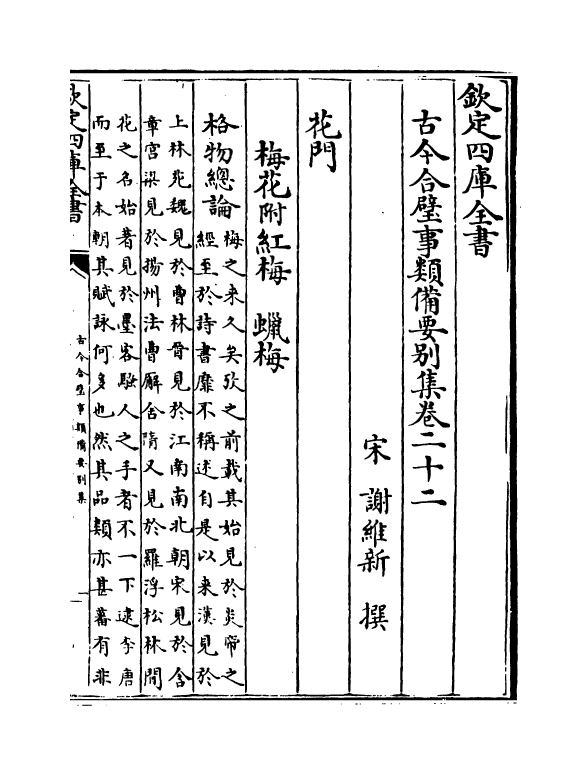 欽定四庫全書
古今合璧事類備要别集卷二十二
宋 謝維新 撰
花門
梅花附紅梅 蠟梅
格物總論
梅之来久矣攷之前載其始見於炎帝之
經至於詩書靡不稱述自是以来漢見於
上林苑魏見於曹林晉見於江南南北朝宋見於含
章宫梁見於揚州法曹廨舎隋又見於羅浮松林間
花之名始著見於墨客騷人之手者不一下逮李唐
而至于本朝其賦詠何多也然其品類亦甚蕃有非
欽定四庫全書
古今合璧事類備要别集
一